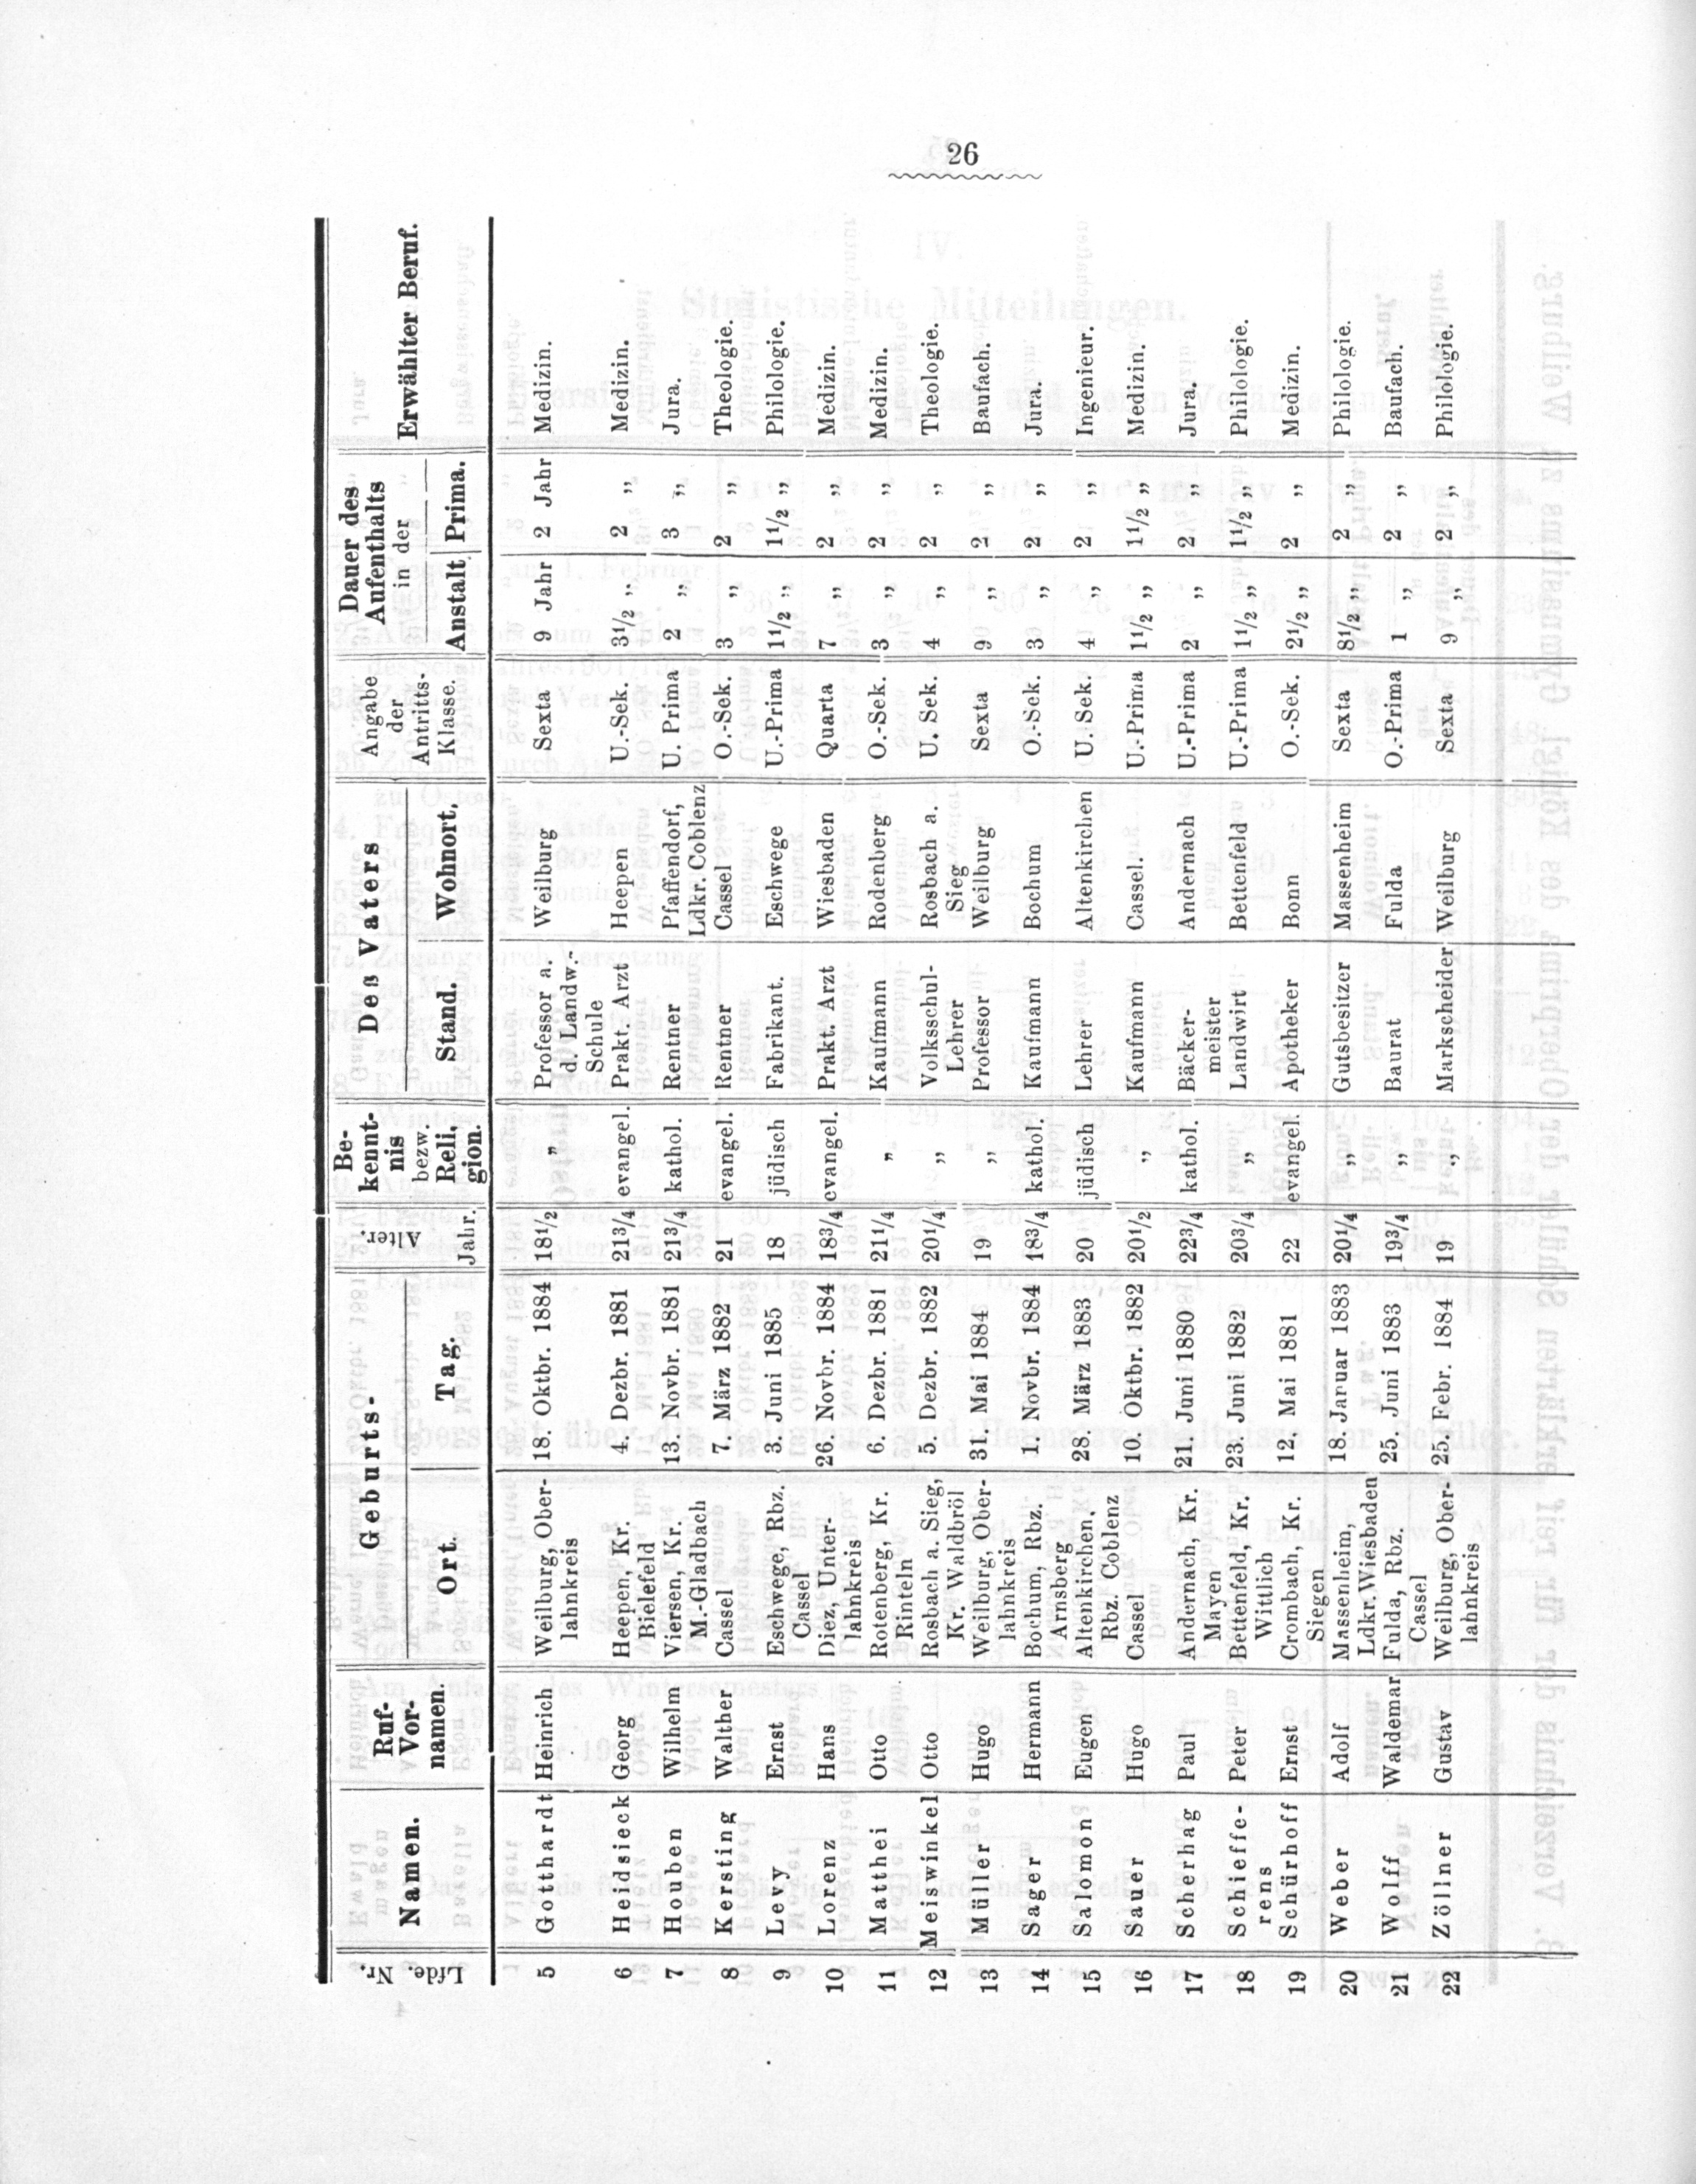 26
Lfde. Nr. Namen. Ruf-Vor-namen. Geburts- Ort. Tag. Alter. Jahr. Be-kennt-nis bezw. Reli, gion. Des Vaters Stand. Wohnort. Angabe der Antritts-Klasse. Dauer des Aufenthalts in der Anstalt Prima. Erwählter Beruf.
5 Gotthardt Heinrich Weilburg, Ober- 18. Oktbr. 1884 18½ „ Professor a. Weilburg Sexta 9 Jahr 2 Jahr Medizin.
lahnkreis d. Landw.-
Schule
6 Heidsieck Georg Heepen, Kr. 4. Dezbr. 1881 21¾ evangel. Prakt. Arzt Heepen U.-Sek. 3½ „ 2 „ Medizin.
Bielefeld
7 Houben Wilhelm Viersen, Kr. 13. Novbr. 1881 21¾ kathol. Rentner Pfaffendorf, U. Prima 2 „ 3 „ Jura.
M.-Gladbach Ldkr. Coblenz
8 Kersting Walther Cassel 7. März 1882 21 evangel. Rentner Cassel O.-Sek. 3 „ 2 „ Theologie.
9 Levy Ernst Eschwege, Rbz. 3. Juni 1885 18 jüdisch Fabrikant. Eschwege U.-Prima 1½ „ 1½ „ Philologie.
Cassel
10 Lorenz Hans Diez, Unter- 26. Novbr. 1884 18¾ evangel. Prakt. Arzt Wiesbaden Quarta 7 „ 2 „ Medizin.
lahnkreis
11 Matthei Otto Rotenberg, Kr. 6. Dezbr. 1881 21¼ „ Kaufmann Rodenberg O.-Sek. 3 „ 2 „ Medizin.
Rinteln
12 Meiswinkel Otto Rosbach a. Sieg, 5. Dezbr. 1882 20¼ „ Volksschul- Rosbach a. U. Sek. 4 „ 2 „ Theologie.
Kr. Waldbröl Lehrer Sieg
13 Müller Hugo Weilburg, Ober- 31. Mai 1884 19 „ Professor Weilburg Sexta 9 „ 2 „ Baufach.
lahnkreis
14 Sager Hermann Bochum, Rbz. 1. Novbr. 1884 18¾ kathol. Kaufmann Bochum O.-Sek. 3 „ 2 „ Jura.
Arnsberg
15 Salomon Eugen Altenkirchen, 28. März 1883 20 jüdisch Lehrer Altenkirchen U.-Sek. 4 „ 2 „ Ingenieur.
Rbz. Coblenz
16 Sauer Hugo Cassel 10. Oktbr. 1882 20½ „ Kaufmann Cassel. U.-Prima 1½ „ 1½ „ Medizin.
17 Scherhag Paul Andernach, Kr. 21. Juni 1880 22¾ kathol. Bäcker- Andernach U.-Prima 2 „ 2 „ Jura.
Mayen meister
18 Schieffe- Peter Bettenfeld, Kr. 23. Juni 1882 20¾ „ Landwirt Bettenfeld U.-Prima 1½ „ 1½ „ Philologie.
rens Wittlich
19 Schürhoff Ernst Crombach, Kr. 12. Mai 1881 22 evangel. Apotheker Bonn O.-Sek. 2½ „ 2 „ Medizin.
Siegen
20 Weber Adolf Massenheim, 18. Januar 1883 20¼ „ Gutsbesitzer Massenheim Sexta 8½ „ 2 „ Philologie.
Ldkr. Wiesbaden
21 Wolff Waldemar Fulda, Rbz. 25. Juni 1883 19¾ „ Baurat Fulda O.-Prima 1 „ 2 „ Baufach.
Cassel
22 Zöllner Gustav Weilburg, Ober- 25. Febr. 1884 19 „ Markscheider Weilburg Sexta 9 „ 2 „ Philologie.
lahnkreis